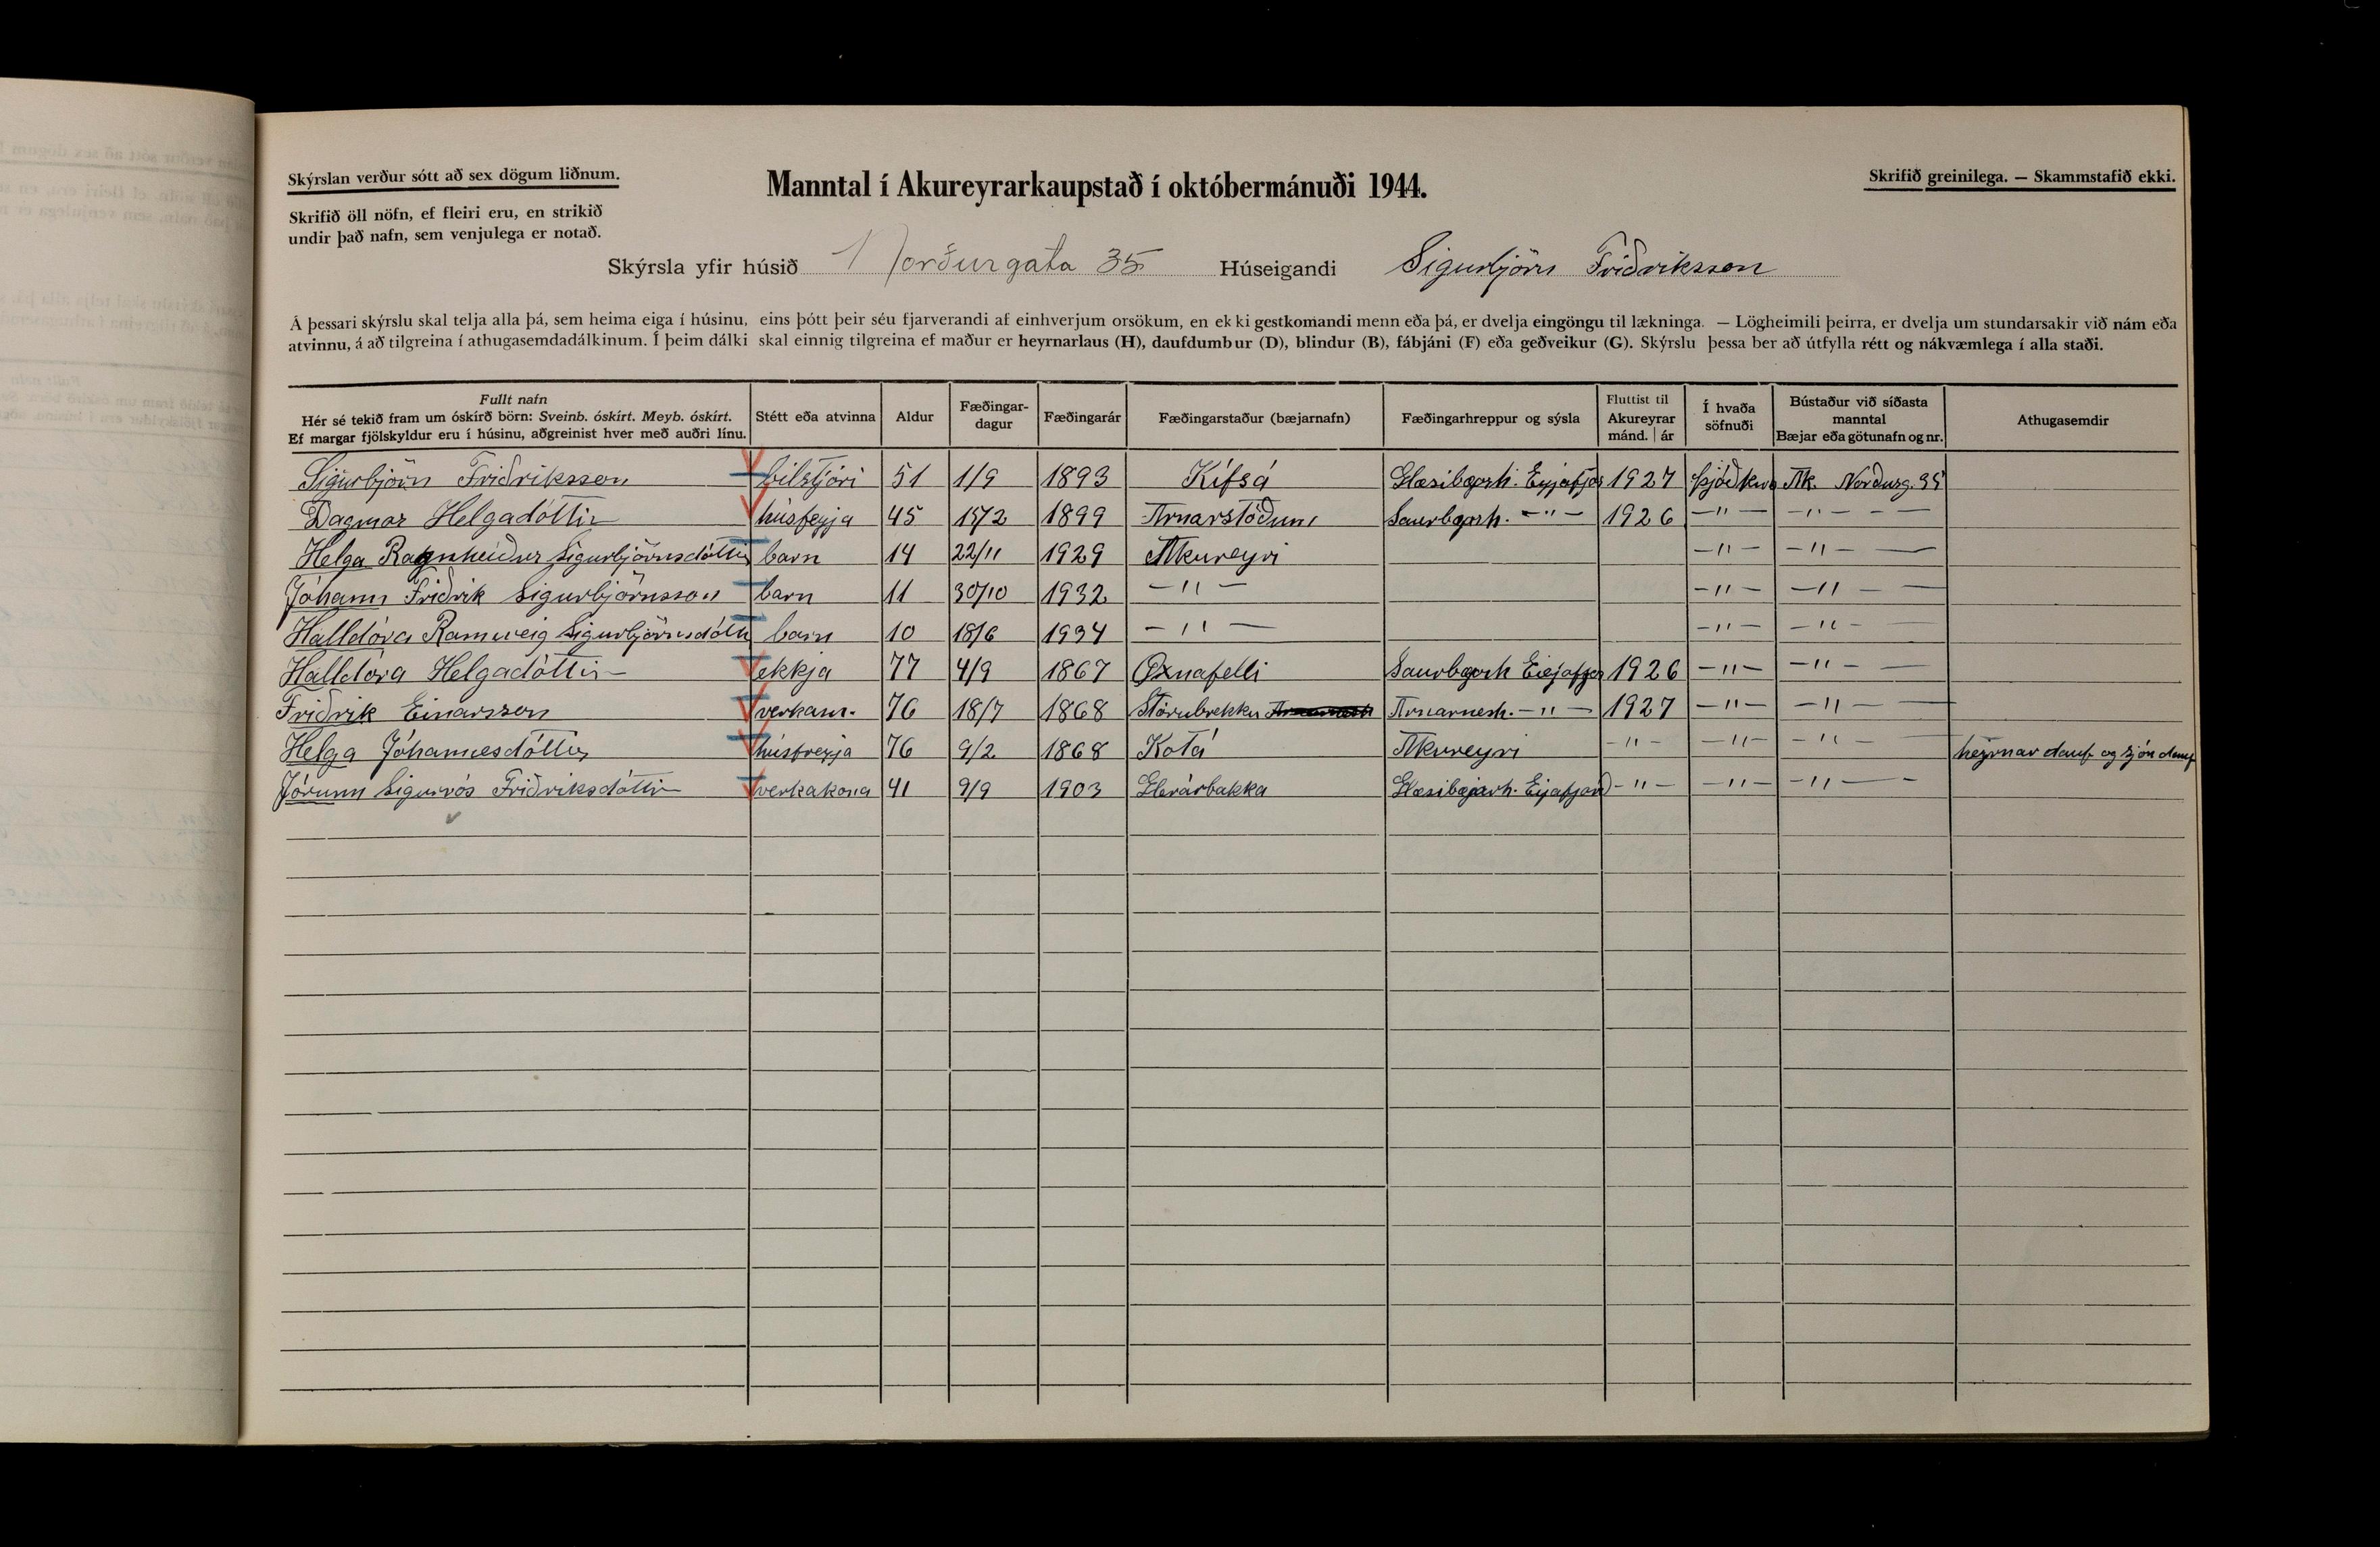 Skýrslan verður sótt að sex dögum liðnum.
Manntal í Akureyrarkaupstað í októbermánuði 1944.
Skrifið greinilega. — Skammstafið ekki.
Skrifið öll nöfn, ef fleiri eru, en strikið
undir það nafn, sem venjulega er notað.
Skýrsla yfir húsið Norðurgata 35 Húseigandi Sigurbjörn Friðriksson
Á þessari skýrslu skal telja alla þá, sem heima eiga í húsinu, eins þótt þeir séu fjarverandi af einhverjum orsökum, en ekki gestkomandi menn eða þá, er dvelja eingöngu til lækninga. — Lögheimili þeirra, er dvelja um stundarsakir við nám eða
atvinnu, á að tilgreina í athugasemdadálkinum. Í þeim dálki skal einnig tilgreina ef maður er heyrnarlaus (H), daufdumbur (D), blindur (B), fábjáni (F) eða geðveikur (G). Skýrslu þessa ber að útfylla rétt og nákvæmlega í alla staði.
Fullt nafn
Hér sé tekið fram um óskírð börn: Sveinb. óskírt. Meyb. óskírt.
Ef margar fjölskyldur eru í húsinu, aðgreinist hver með auðri línu.
Stétt eða atvinna
Aldur
Fæðingar-
dagur
Fæðingarár
Fæðingarstaður (bæjarnafn)
Fæðingarhreppur og sýsla
Fluttist til
Akureyrar
mánd. | ár
Í hvaða
söfnuði
Bústaður við síðasta
manntal
Bæjar eða götunafn og nr.
Athugasemdir
Sigurbjörn Friðriksson bílstjóri 51 1/9 1893 Kífsá Glæsibæjarh. Eyjafjs 1927 Þjóðkirk Ak. Norðurg. 35
Dagmar Helgadóttir húsfreyja 45 15/2 1899 Arnarstöðum Saurbæjarh. —"— 1926 —"— —"— — —
Helga Ragnheiður Sigurbjörnsdóttir barn 14 22/11 1929 Akureyri —"— —"— —
Jóhann Friðrik Sigurbjörnsson barn 11 30/10 1932 —"— —"— —"— — —
Halldóra Rannveig Sigurbjörnsdóttir barn 10 18/6 1934 —"— —"— —"— —
Halldóra Helgadóttir ekkja 77 4/9 1867 Öxnafelli Saurbæjarh Eyjafjs 1926 —"— —"— —
Friðrik Einarsson verkam. 76 18/7 1868 Stórubrekku Arnarnesh. —"— 1927 —"— —"— —
Helga Jóhannesdóttir húsfreyja 76 9/2 1868 Kotá Akureyri —"— —"— —"— — heyrnar dauf og sjón dauf
Jórunn Sigurrós Friðriksdóttir verkakona 41 9/9 1903 Glerárbakka Glæsibæjarh. Eyjafjarð —"— —"— —"— —